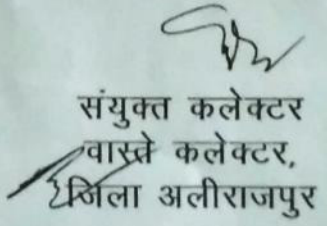 संयुक्त कलेक्टर
वास्ते कलेक्टर,
जिला अलीराजपुर